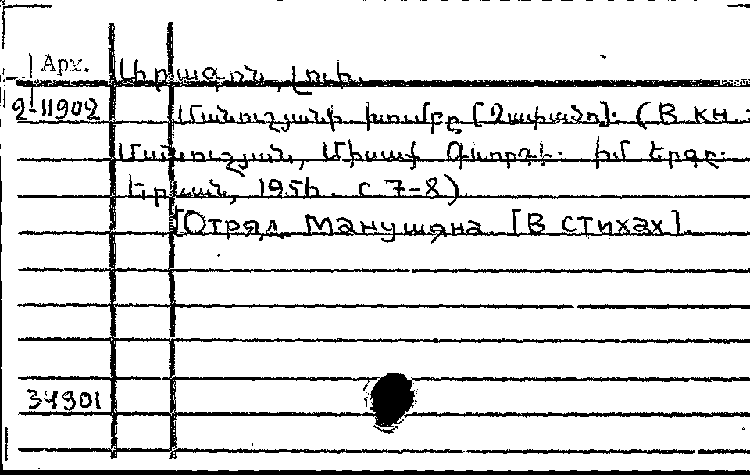 Арх. Արագոն, Լուի.
2-11902 Մանուշյանի խումբը [Չափածո]: (В кн.
Մանուշյան, Միսաք Գևորգի: Իմ երգը:
Երևան, 1956. с 7-8)
[Отряд Манушяна. [В стихах].
34901